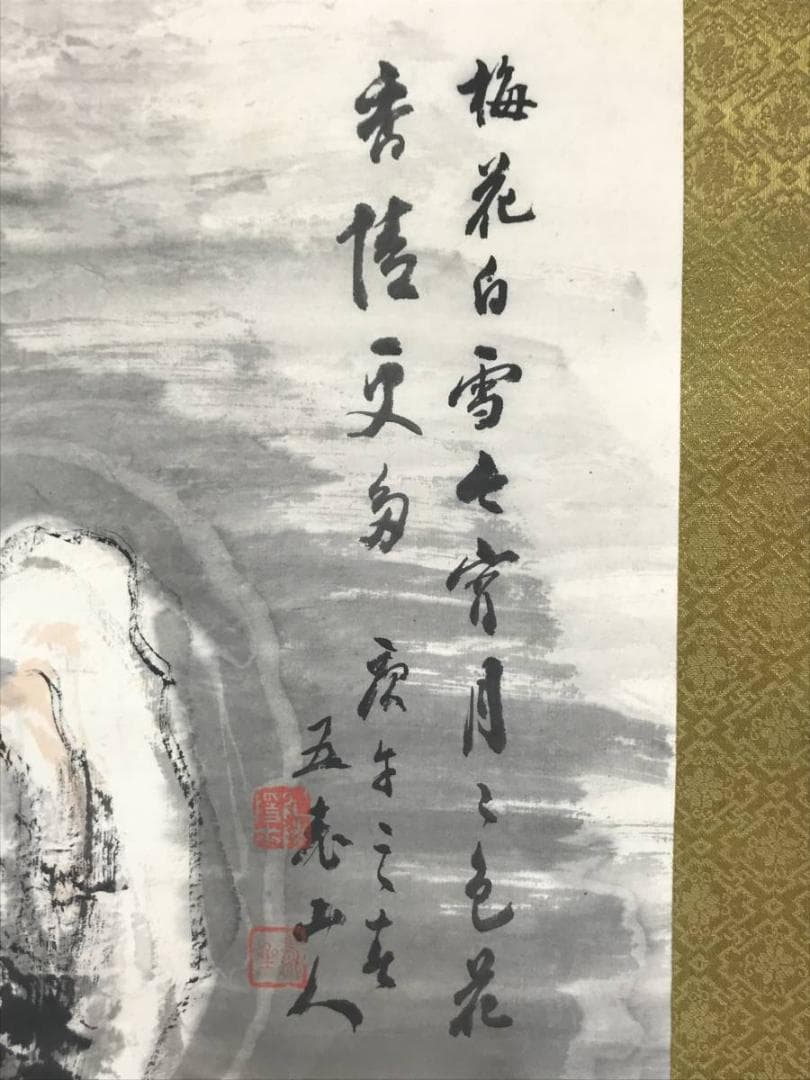 梅花白雪七宵月〻色花
香情更多
庚午之春
五老山人